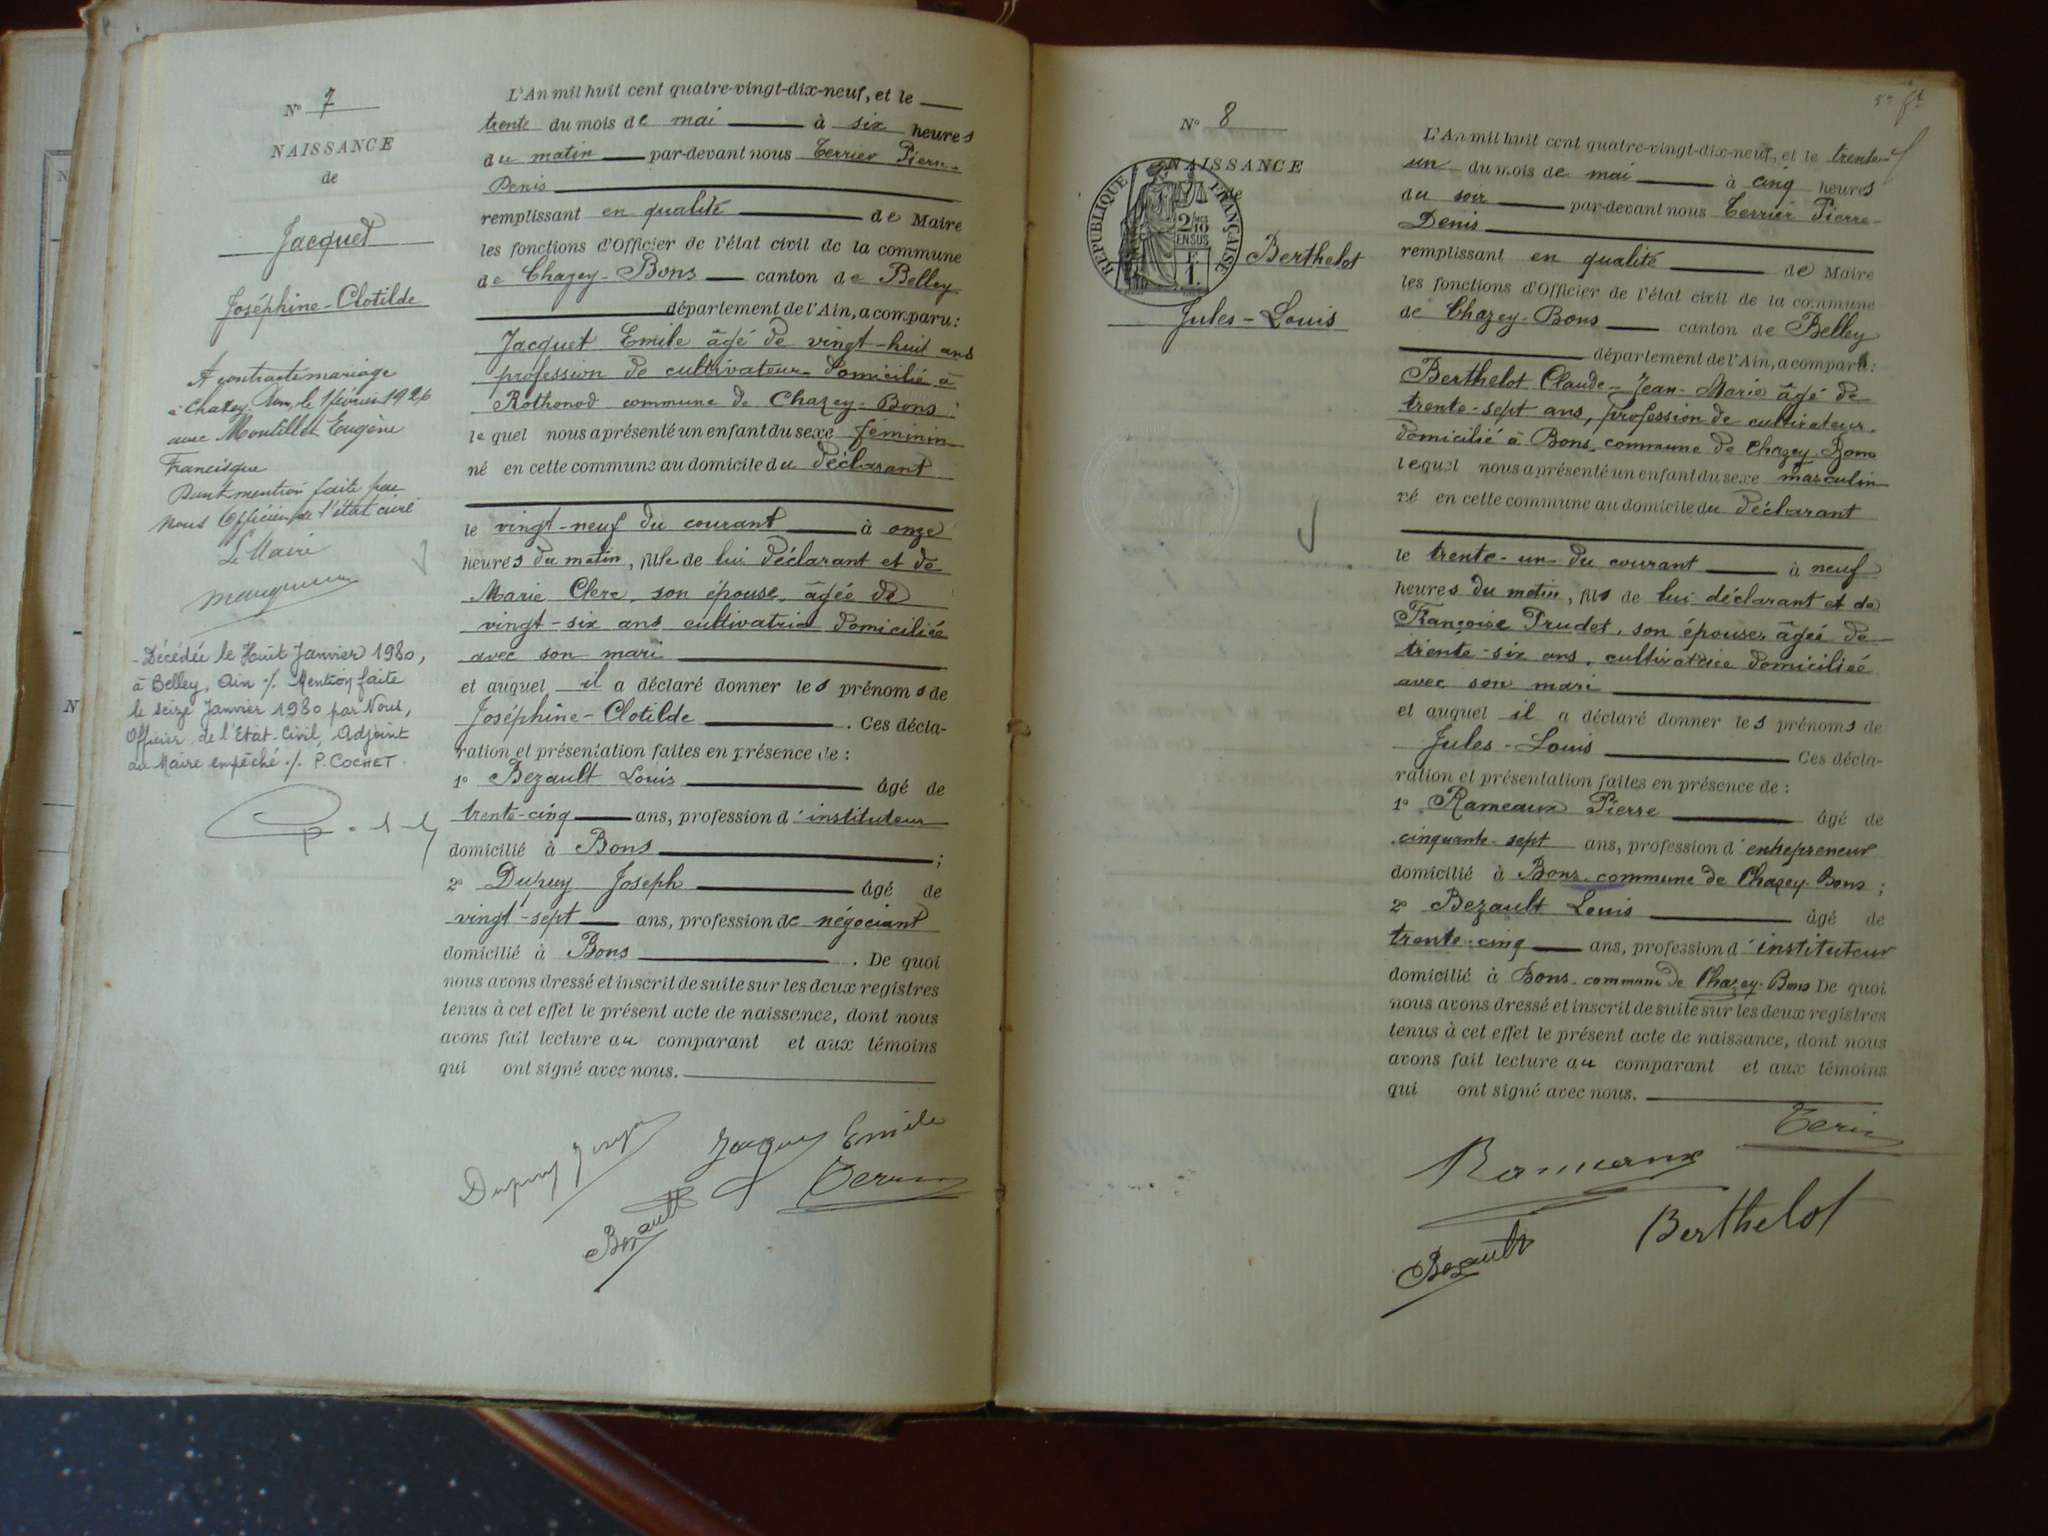 N° 7
NAISSANCE
de
Jacquet
Joséphine-Clotilde
A contracté mariage
à Chazey-Bons, le 1 février 1926
avec Montillet Eugène
Francisque
Dont mention faite par
nous Officier de l'état civil
Le Maire
- Décédée le Huit Janvier 1980,
à Belley, Ain ./. Mention faite
le seize Janvier 1980 par Nous,
Officier de l'Etat-Civil, Adjoint
au Maire empêché ./. P. COCHET.
L'An mil huit cent quatre-vingt-dix-neuf, et le
trente du mois de mai à six heures
du matin par-devant nous Terrier Pierre-
Denis
remplissant en qualité de Maire
les fonctions d'Officier de l'état civil de la commune
de Chazey-Bons canton de Belley
département de l'Ain, a comparu:
Jacquet Emile âgé de vingt-huit ans
profession de cultivateur domicilié à
Rothonod commune de Chazey-Bons
lequel nous a présenté un enfant du sexe féminin
né en cette commune au domicile du déclarant
le vingt-neuf du courant à onze
heures du matin, fille de lui déclarant et de
Marie Clerc, son épouse, âgée de
vingt-six ans cultivatrice domiciliée
avec son mari
et auquel il a déclaré donner les prénoms de
Joséphine-Clotilde. Ces décla-
ration et présentation faites en présence de:
1° Bezault Louis âgé de
trente-cinq ans, profession d'instituteur
domicilié à Bons;
2° Dupuy Joseph âgé de
vingt-sept ans, profession de négociant
domicilié à Bons. De quoi
nous avons dressé et inscrit de suite sur les deux registres
tenus à cet effet le présent acte de naissance, dont nous
avons fait lecture au comparant et aux témoins
qui ont signé avec nous.
Dupuy Joseph Jacquet Emile
Bezault Terrier
N° 8
NAISSANCE
de
REPUBLIQUE FRANÇAISE
2/10
EN SUS
F.
1.
Berthelot
Jules-Louis
L'An mil huit cent quatre-vingt-dix-neuf, et le trente-
un du mois de mai à cinq heures
du soir par-devant nous Terrier Pierre-
Denis
remplissant en qualité de Maire
les fonctions d'Officier de l'état civil de la commune
de Chazey-Bons canton de Belley
département de l'Ain, a comparu:
Berthelot Claude-Jean-Marie âgé de
trente-sept ans, profession de cultivateur
domicilié à Bons commune de Chazey-Bons
lequel nous a présenté un enfant du sexe masculin
né en cette commune au domicile du déclarant
le trente-un du courant à neuf
heures du matin, fils de lui déclarant et de
Françoise Prudet, son épouse, âgée de
trente-six ans, cultivatrice domiciliée
avec son mari
et auquel il a déclaré donner les prénoms de
Jules-Louis Ces décla-
ration et présentation faites en présence de:
1° Rameaux Pierre âgé de
cinquante-sept ans, profession d'entrepreneur
domicilié à Bons-commune de Chazey-Bons;
2° Bezault Louis âgé de
trente-cinq ans, profession d'instituteur
domicilié à Bons-commune de Chazey-Bons De quoi
nous avons dressé et inscrit de suite sur les deux registres
tenus à cet effet le présent acte de naissance, dont nous
avons fait lecture au comparant et aux témoins
qui ont signé avec nous.
Terrier
Rameaux
Bezault Berthelot